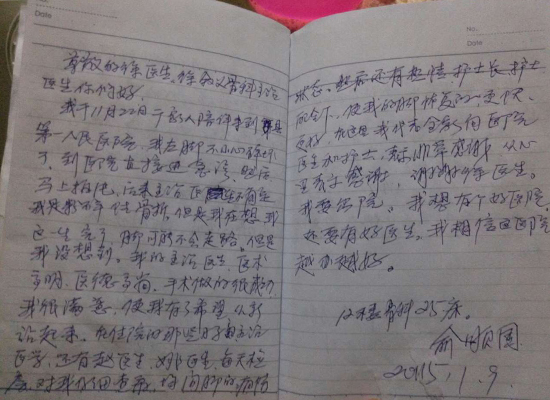 No.
Date
尊敬的徐医生，徐主义骨科主治
医生你们好
我于11月22日于家人陪伴来到县
第一人民医院，我左脚不小心
了到医院直接进急诊，医治
马上拍片，后来主治医生确定
我是粉碎性骨折，但是我在想我
这一生完了，脚可能不会走路，但是
我没想到。我的主治医生，医术
高明，医德高尚，手术做的很成功
我很满意，使我有了希望，从新
站起来，在住院的那些日子有主治
医学，还有赵医生，医生，每天检
查，对我仔细查看，问脚的病情
No.
Date
状态。然后还有热情护士长，护士
配合下，使我的脚恢复的更快、
更好，在这里我代表全家向医院
医生和护士，表示非常感谢，从心
里表示感谢，谢谢徐医生。
我要出院。我想有个好医院
还要有好医生。我相信医院
越办越好。
12楼骨科25床。
俞顺国
2015.1.9.